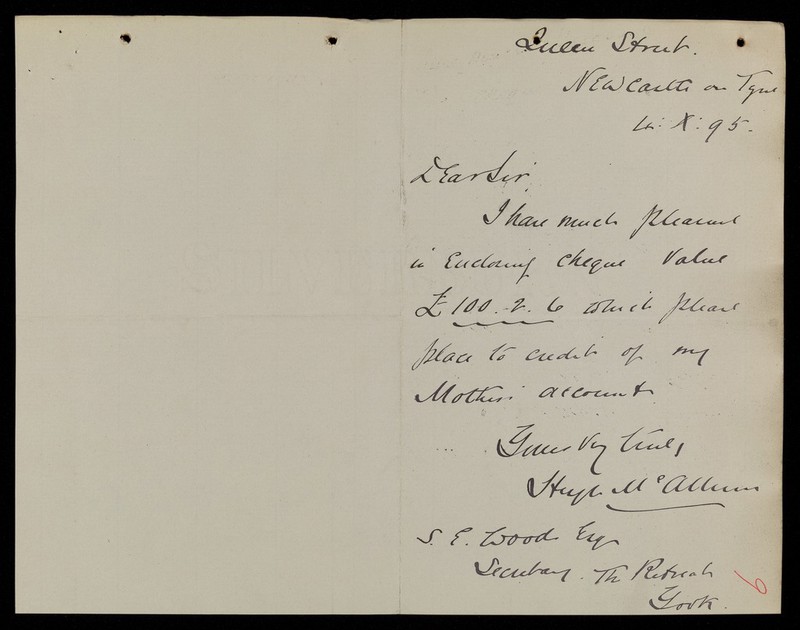 Queen Street.
Newcastle on Tyne
X: 95.
Dear Sir,
I have much pleasure
in Enclosing cheque Value
£100. 2. 6 which please
place to credit of my
Mothers account.
Yours Very truly
Hugh McCallum
S. E. Wood Esq
Secretary. The Retreat
York.
6